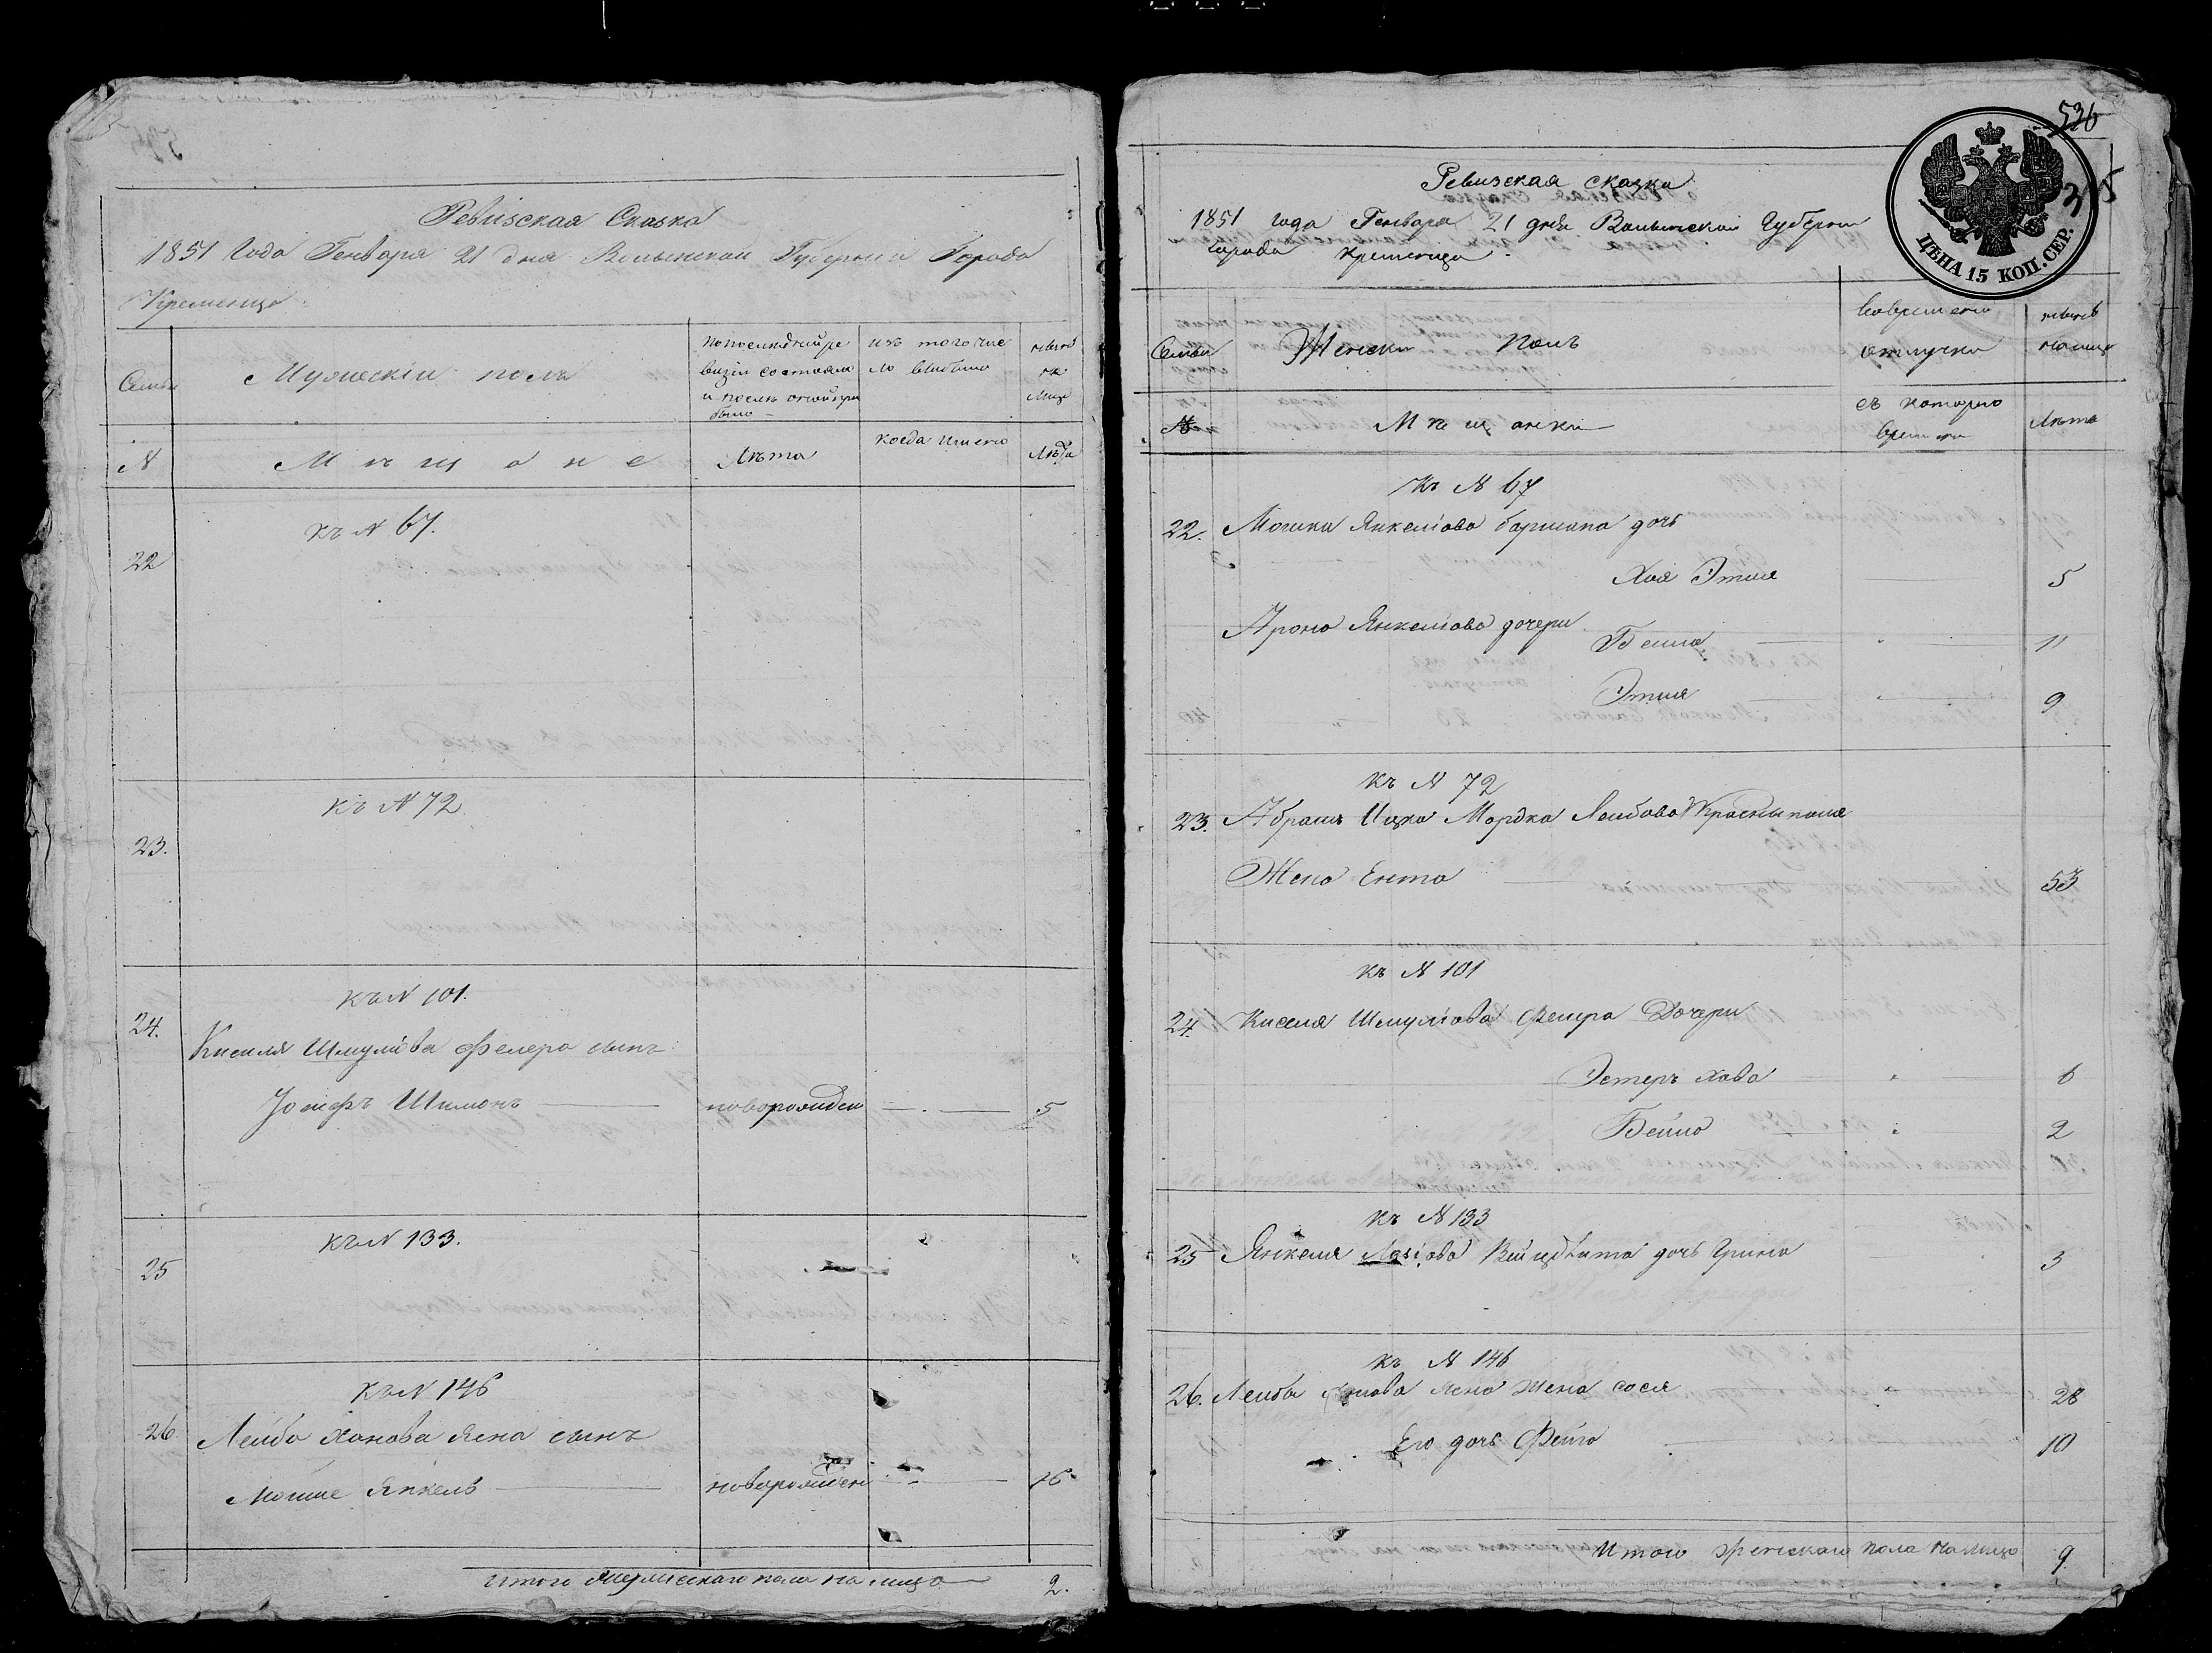 Ревизская Сказка
1851 Года Генваря 21 дня Волынской Губернии Города
Кременца
Семьи
Мужескiй полъ
по последней ре
визiи состояло
и после оной при
было
изъ того чис
ло выбыло
ныне
на
лицо
N
Мѣщане
Лѣта
когда именно
Лѣта
22
къ N 67.
23.
къ N 72.
24.
къ N 101.
Киселя Шмулiова Фелера сынъ
Iосифъ Шимонъ
новорожден
5
25
къ N 133.
26
къ N 146
Лейбо Ханова Ясна сынъ
Мошше Янкель
новорожден
16
Итого Мужескаго пола на лицо
2.
536
315
ЦѢНА 15 КОП. СЕР.
Ревизская сказка
1851 года Генваря 21 дня Волынской Губернии
города Кременца.
Семьи
Женски Полъ
вовремено
отлучки
ныне
на лицо
№
Мѣщанки
съ котораго
времени
Лѣта
къ N 67
22. Мошка Янкелiова дочь
Хая Этля 5
Арона Янкелiова дочери
Бейла 11
Этля 9
къ N 72
23. Абрамъ Ицка Мордка Лейбова Краснополя
Жена Ента 53
къ N 101
24. Киселя Шмулiова Фелера Дочери
Эстеръ Хава 6
Бейла 2
къ N 133
25 Янкеля дочь 3
къ N 146
26. Лейба Ханова Ясна жена Сося 28
Его дочь Фейга 10
Итого Женскаго пола на лицо 9.